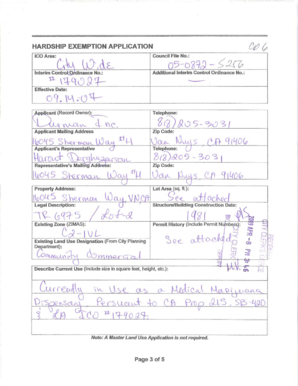 HARDSHIP EXEMPTION APPLICATION
CD 6
ICO Area: Council File No.:
City Wide 05-0872-S2
Interim Control Ordinance No.: Additional Interim Control Ordinance No.:
# 179027
Effective Date:
09.14.07
Applicant (Record Owner): Telephone:
Inc. (818) 205-3031
Applicant Mailing Address Zip Code:
16045 Sherman Way #H Van Nuys CA 91406
Applicant's Representative Telephone:
(818) 205-3031
Representative's Mailing Address: Zip Code:
16045 Sherman Way #H Van Nuys, CP 91406
Property Address: Lot Area (sq. ft.):
16045 Sherman Way, VN, CA See attached
Legal Description: Structure/Building Construction Date:
TR 6975 Lot 2 1981
Existing Zone (ZIMAS): Permit History (Include Permit Numbers):
C2-1VL See attached
Existing Land Use Designation (From City Planning
Department):
Community Commercial
Describe Current Use (Include size in square feet, height, etc.):
Currently in Use as a Medical Marijuana
Dispensary. Persuent to CA Prop 215, SB-420
& LA ICO #179027.
Note: A Master Land Use Application is not required.
Page 3 of 5